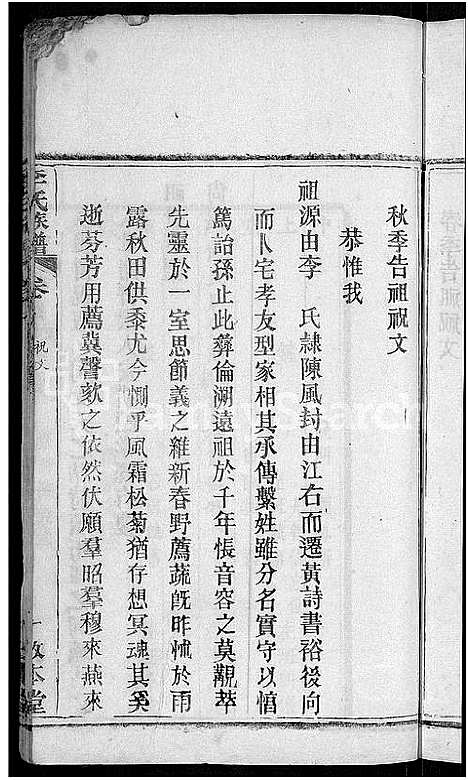 秋季告祖祝文
恭惟我
祖源由李 氏隷陳風封由江右而遷黃詩書裕後向
而卜宅孝友型家相其承傳繫姓雖分名實守以慎
篤詒孫止此彛倫溯遠祖於千年悵音容之莫覩萃
先靈於一室思節義之維新春野薦蔬旣昨怵於雨
露秋田供黍尤今惻乎風霜松菊猶存想冥魂其奚
逝芬芳用薦冀謦欬之依然伏願羣昭羣穆來燕來
氏族譜
卷
祝文
一
敦本堂